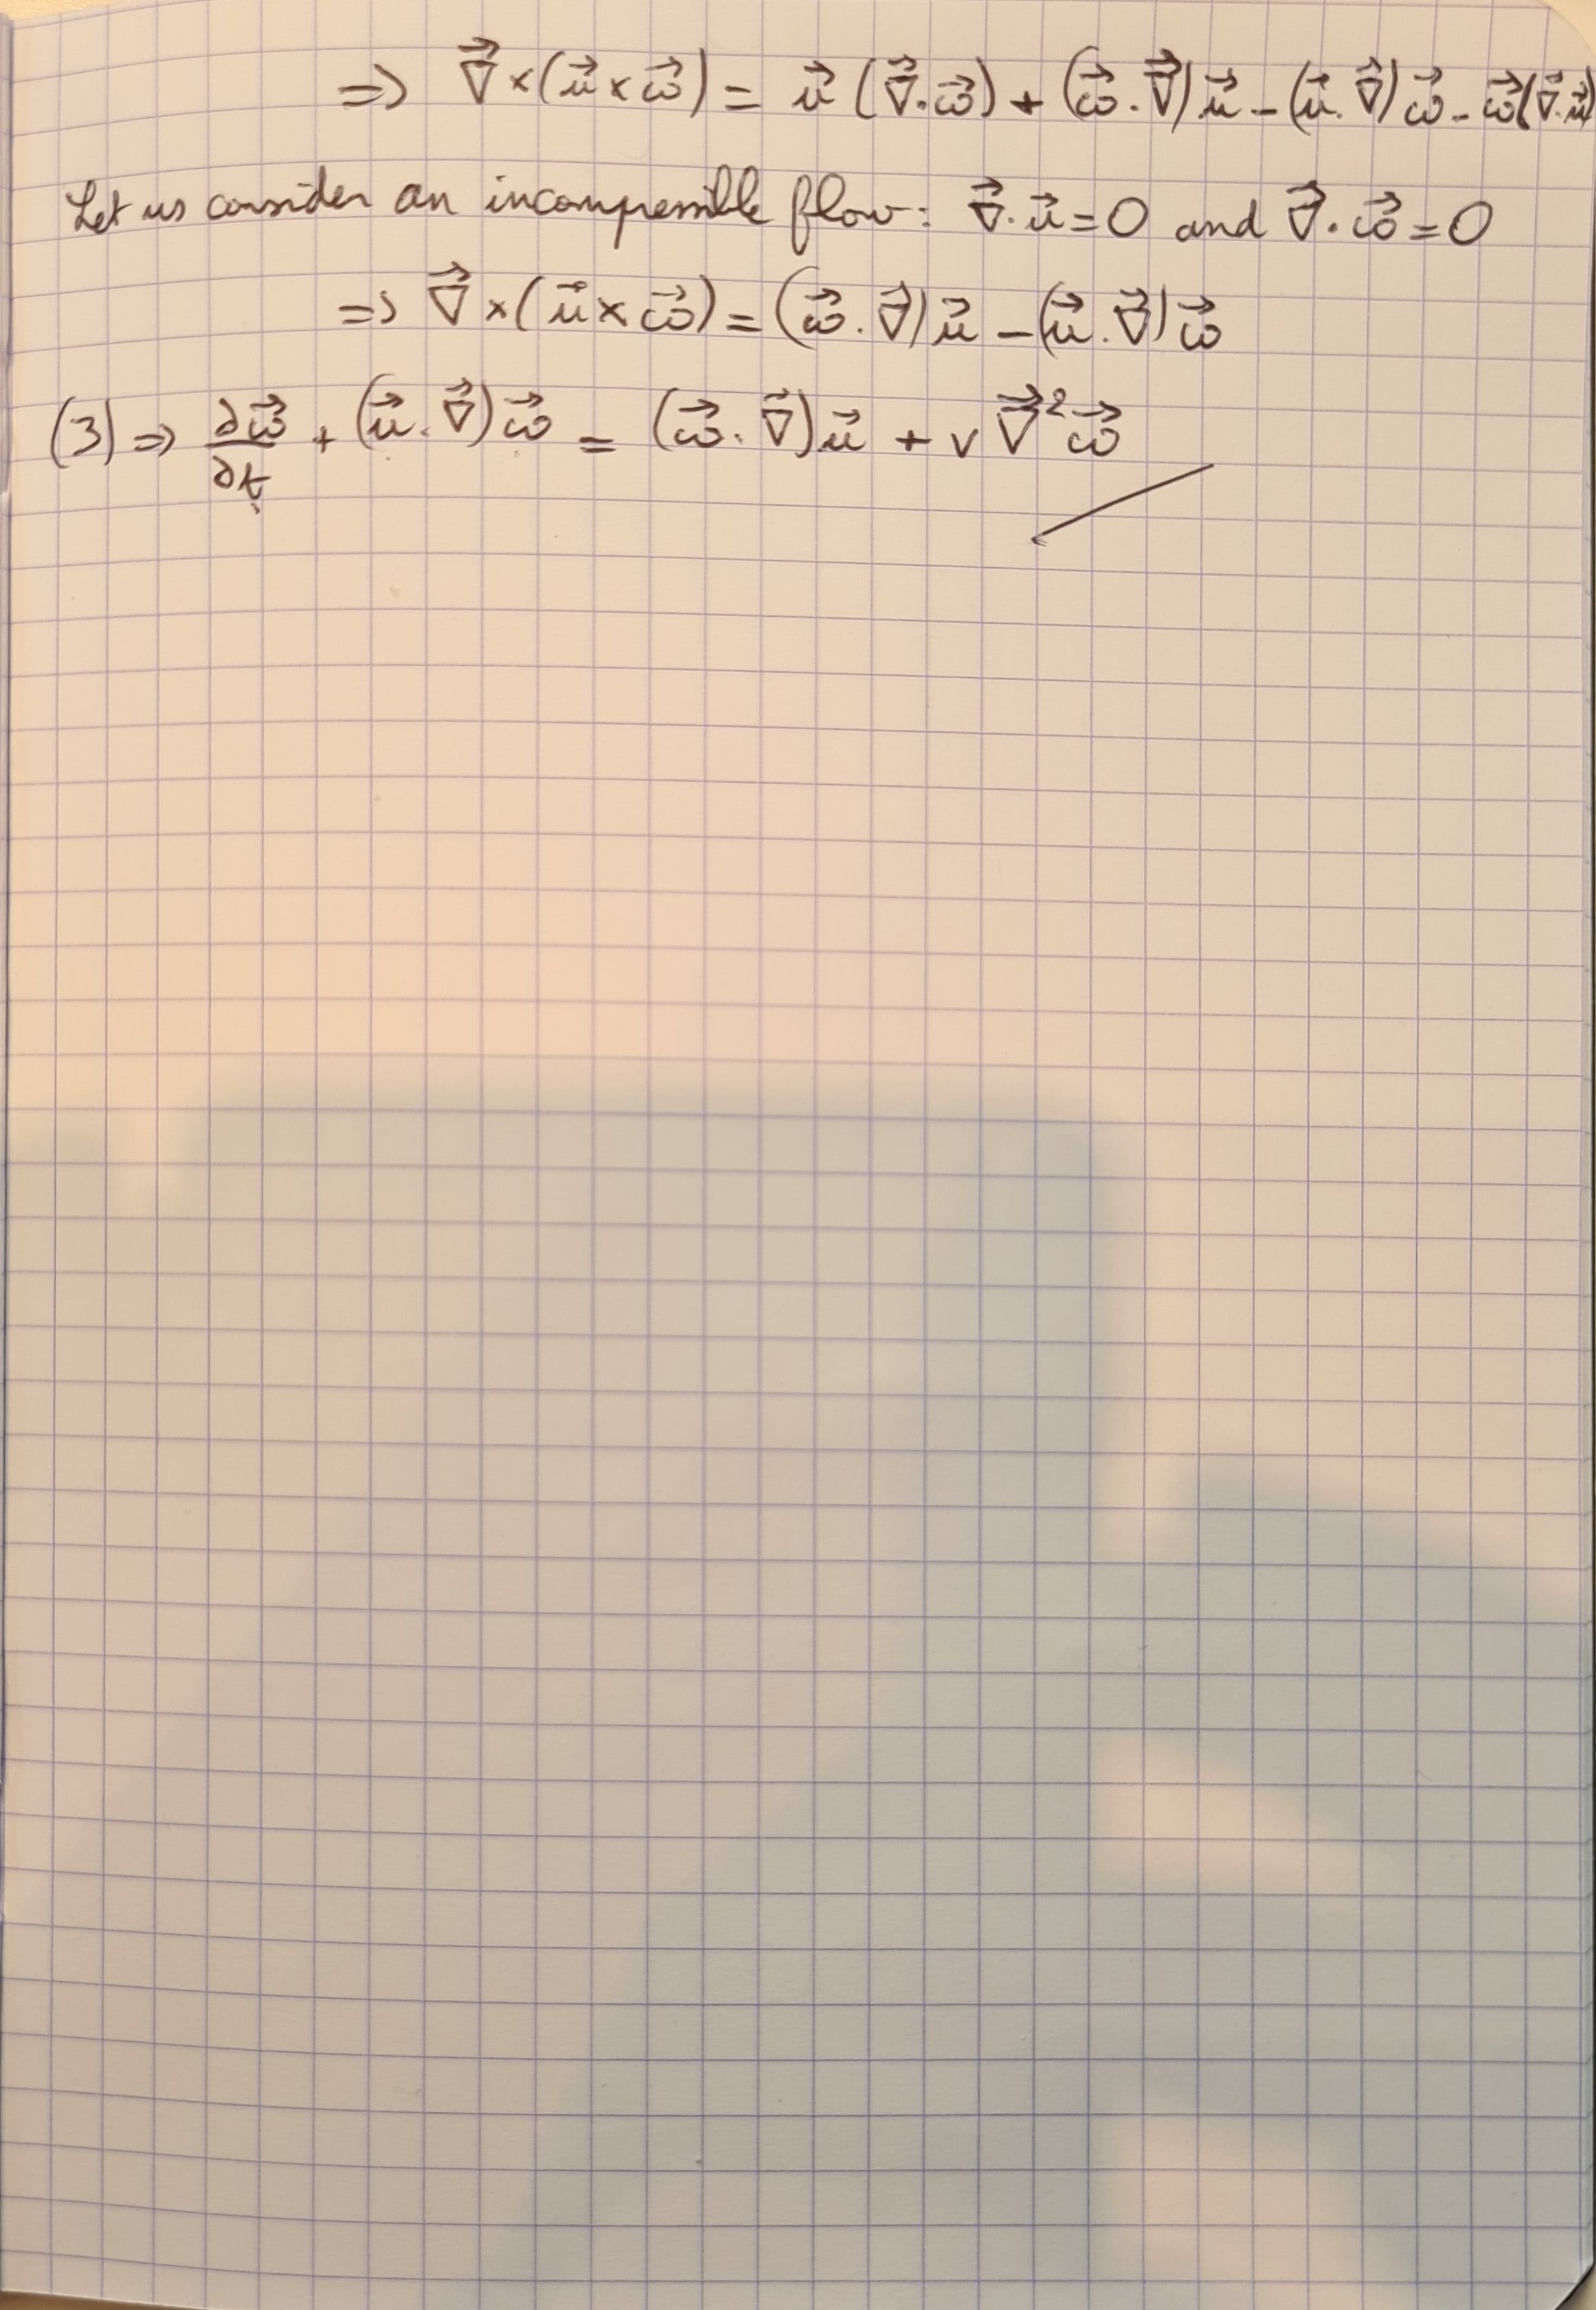 => ∇⃗×(u⃗×ω⃗) = u⃗(∇⃗.ω⃗) + (ω⃗.∇⃗)u⃗ - (u⃗.∇⃗)ω⃗ - ω⃗(∇⃗.u⃗)
Let us consider an incompressible flow: ∇⃗.u⃗=0 and ∇⃗.ω⃗=0
=> ∇⃗×(u⃗×ω⃗) = (ω⃗.∇⃗)u⃗ - (u⃗.∇⃗)ω⃗
(3) => ∂ω⃗/∂t + (u⃗.∇⃗)ω⃗ = (ω⃗.∇⃗)u⃗ + ν∇⃗²ω⃗